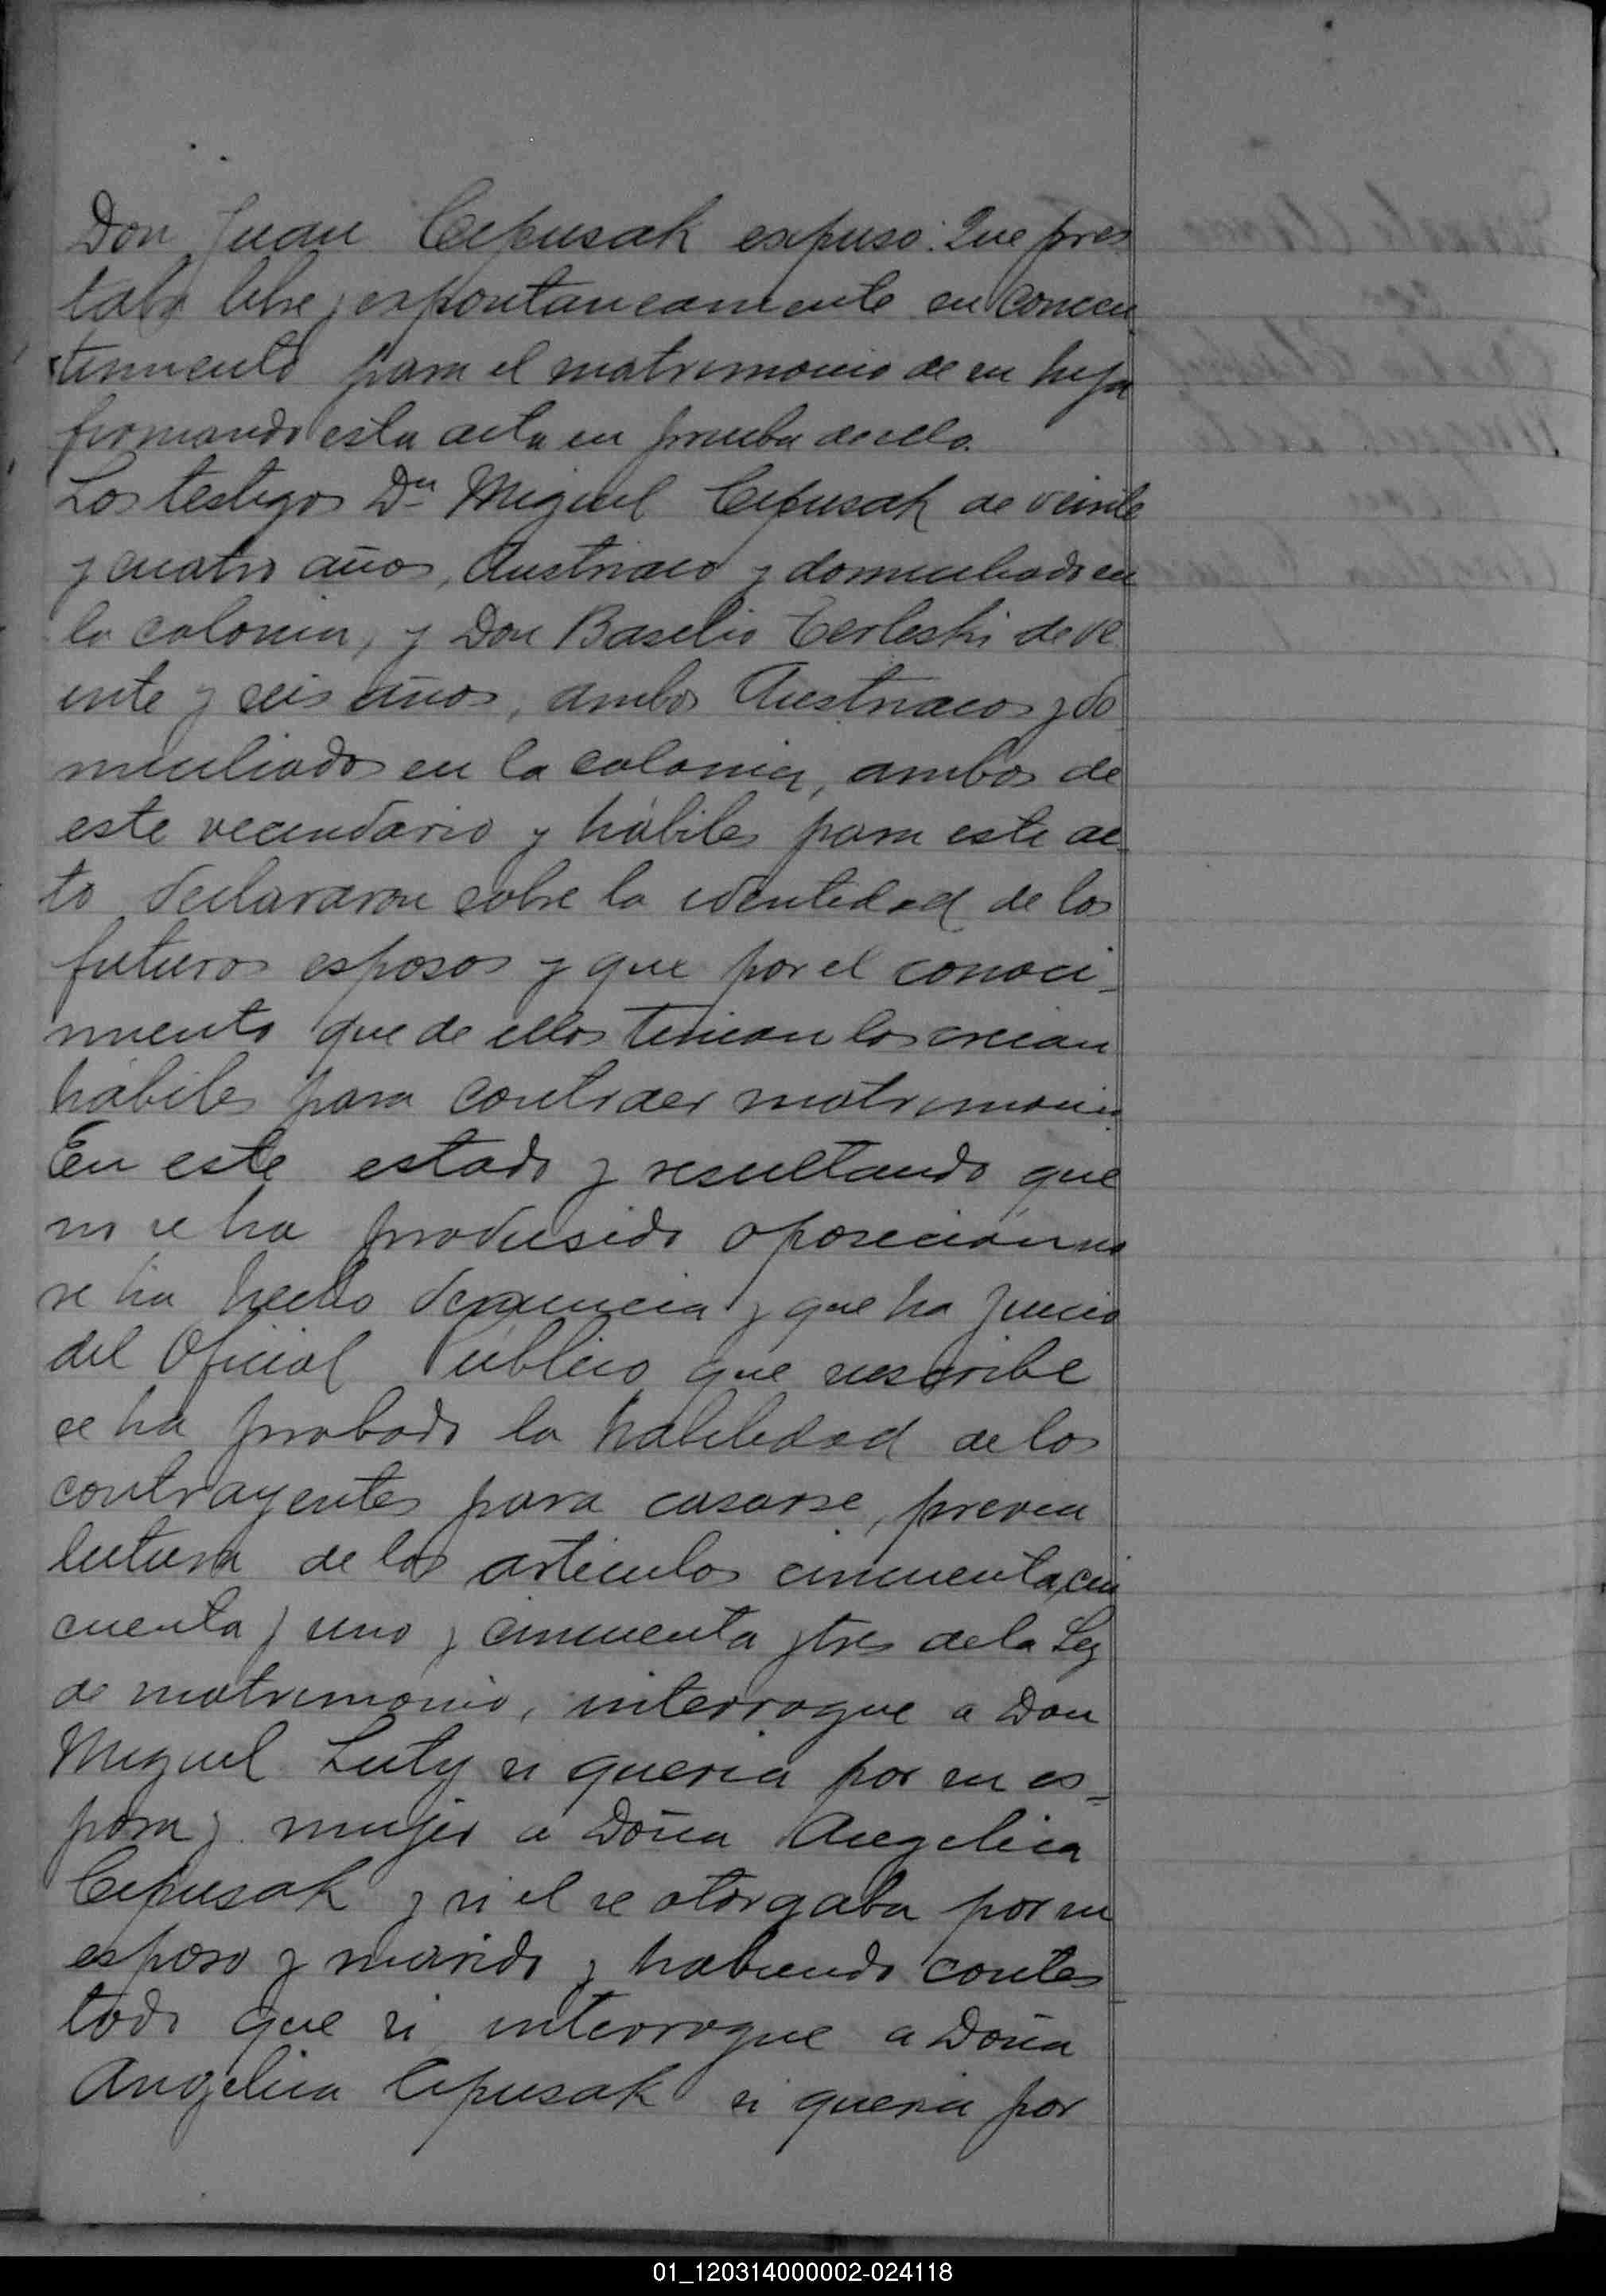 Don Juan Cepusak expuso: Que pres
taba libre y espontaneamente su concen
timiento para el matrimonio de su hija
firmando esta acta en prueba de ello.
Los testigos Dn Miguel Cepusak de veinte
y cuatro años, Austriaco y domiciliado en
la colonia, y Don Basilio Terleski de ve
inte y seis años, ambos Austriacos y do
miciliados en la colonia, ambos de
este vecindario y hábiles para este ac-
to declararon sobre la identidad de los
futuros esposos y que por el conoci-
miento que de ellos tenian los creian
hábiles para contraer matrimonio.
En este estado y resultando que
no se ha producido oposición no
se ha hecho denuncia y que ha juicio
del Oficial Público que suscribe
se ha probado la habilidad de los
contrayentes para casarse, previa
lectura de los articulos cincuenta, cin
cuenta y uno y cincuenta y tres de la Ley
de matrimonio, interrogue a Don
Miguel Luty si queria por su es-
posa y mujer a Doña Angelica
Cepusak y si el se otorgaba por su
esposo y marido y habiendo contes
tado que si interrogue a Doña
Angelica Cepusak si queria por
01_120314000002-024118